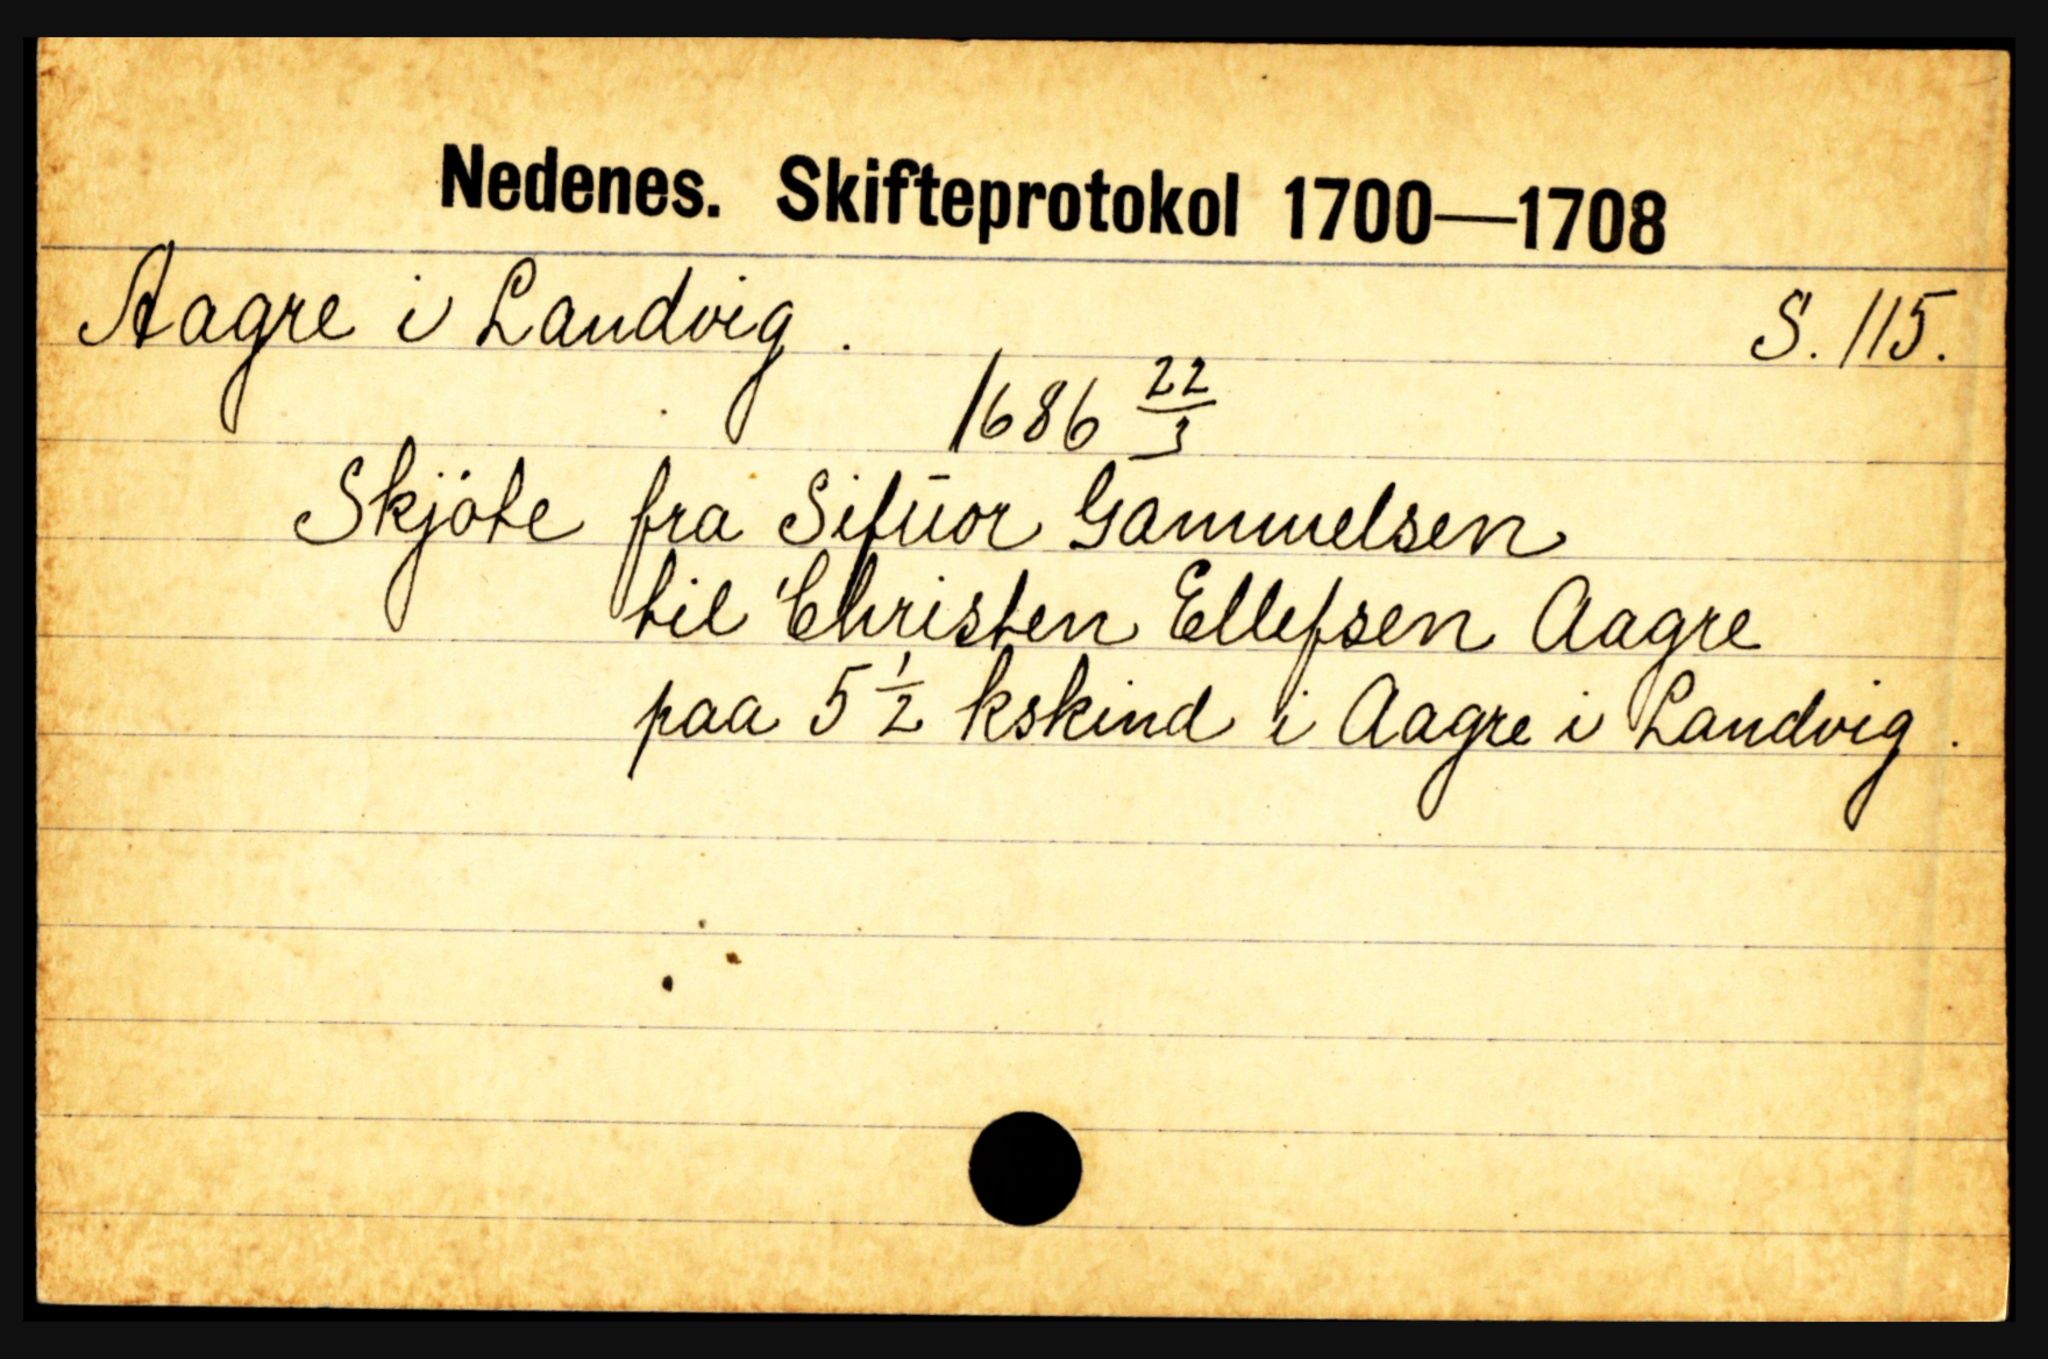 Nedenes. Skifteprotokol 1700—1708
Aagre i Landvig. S. 115.
1686 22/3
Skjöte fra Sifūor Gammelsen
til Christen Ellefsen Aagre
paa 5 1/2 kskind i Aagre i Landvig.